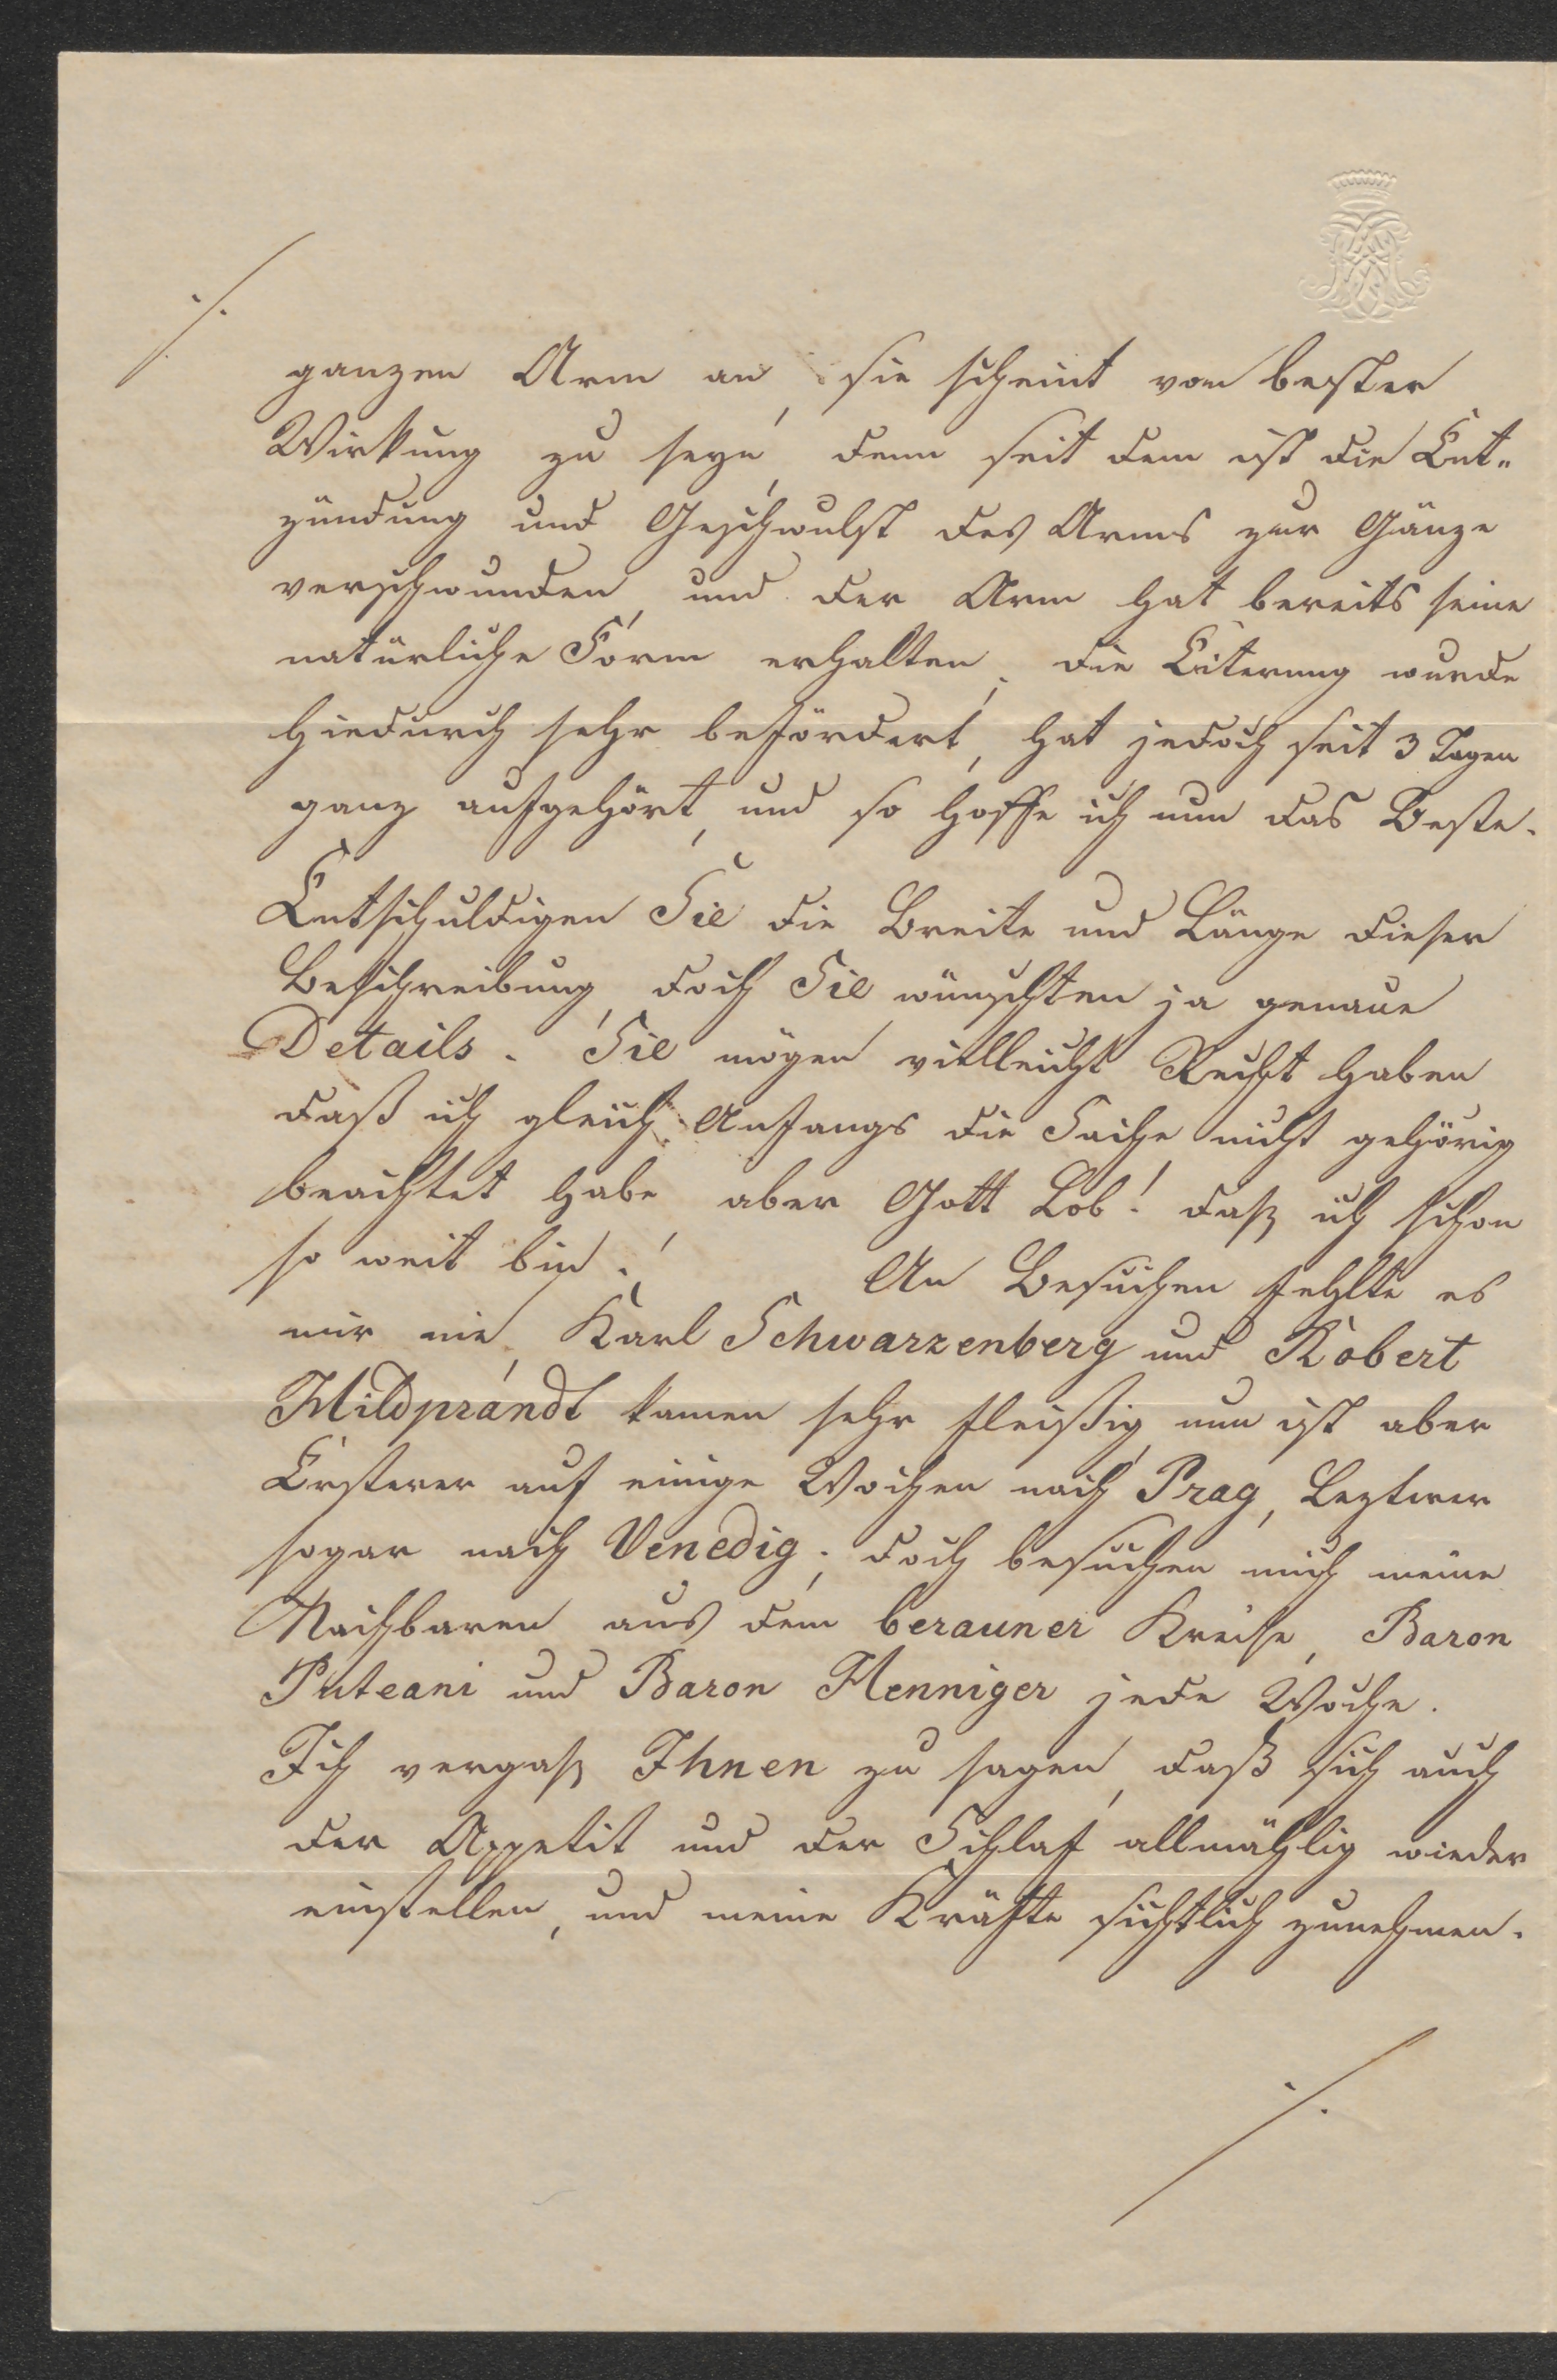 ./.
ganzen Arm an, sie scheint von bester
Wirkung zu seyn, denn seit dem ist die Ent„
zündung und Geschwulst des Arms zur Gänze
verschwunden, und der Arm hat bereits seine
natürliche Form erhalten; die Eiterung wurde
hiedurch sehr befördert, hat jedoch seit 3 Tagen
ganz aufgehört, und so hoffe ich nun das Beste.
Entschuldigen Sie die Breite und Länge dieser
Beschreibung, doch Sie wünschten ja genaue
Details. Sie mögen vielleicht Recht haben
daß ich gleich Anfangs die Sache nicht gehörig
beachtet habe, aber Gott Lob! daß ich schon
so weit bin! An Besuchen fehlte es
mir nie, Karl Schwarzenberg und Robert
Hildprandt kamen sehr fleißig, nun ist aber
Ersterer auf einige Wochen nach Prag, Lezterer
sogar nach Venedig; doch besuchen mich meine
Nachbaren aus dem berauner Kreise, Baron
Puteani und Baron Henniger jede Woche.
Ich vergaß Ihnen zu sagen, daß sich auch
der Appetit und der Schlaf allmählig wieder
einstellen, und meine Kräfte sichtlich zunehmen.
./.